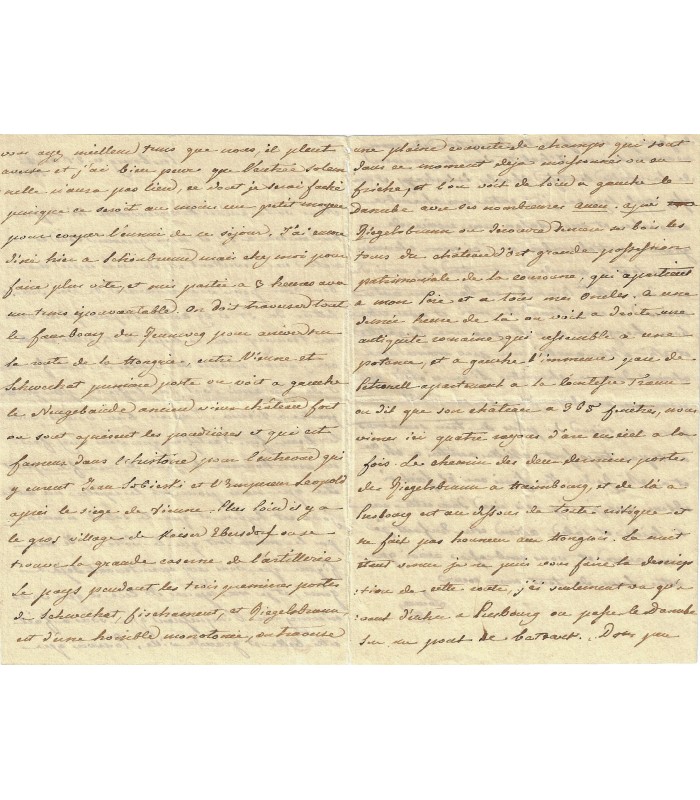 vous ayez meilleur tems que nous, il pleut
averse et j'ai bien peur que l'entrée solen
nelle n'aura pas lieu, ce dont je serai faché
puisque ce seroit au moins un petit moyen
pour couper l'ennui de ce séjour. J'ai encore
diné hier a Schönbrunn mais chez moi pour
faire plus vite, et suis partie a 3 heures avec
un tems épouvantable. On doit traverser tout
le fauxbourg du Rennweg pour arriver sur
la route de la Hongrie, entre Vienne et
Schwechat premiere poste on voit a gauche
le Neugebaüde ancien vieux château fort
ou sont apresent les poudrières et qui est
fameux dans l'histoire pour l'entrevue qui
y eurent Jean Sobieski et l'Empereur Leopold
après le siege de Vienne. Plus loin il y a
le gros village de Kaiser Ebersdorf ou se
trouve la grande caserne de l'artillerie
Le pays pendant les trois premieres postes
de Schwechat, fischament, et Riegelsbrunn,
est d'une horrible monotonie, on traverse
une plaine couverte de champs qui sont
dans ce moment deja moissonnés ou en
friche, et l'on voit de loin a gauche le
Danube avec ses nombreuses
Riegelsbrunn on découvre derriere un bois les
tours du château d'Ort grande possession
patrimoniale de la couronne, qui apartient
a mon Père et a tous mes Oncles. a une
demie heure de la on voit a droite une
antiquité romaine qui ressemble a une
potence, et a gauche l'immense parc de
Petronell apartenant a la Comtesse Traun
on dit que son château a 365 fenêtres, nous
vimes ici quatre rayons d'arc en ciel a la
fois. Le chemin des deux dernieres postes
de Riegelsbrunn a Haimbourg, et de la a
Presbourg est au dessous de toute critique et
ne fait pas honneur aux Hongrois. La nuit
étant venue je ne puis vous faire la descrip
tion de cette route, j'ai seulement vu qu'a
vant d'entrer a Presbourg on passe le Danube
sur un pont de bateaux.